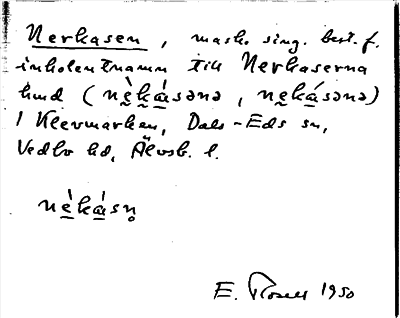 Nerkasen, mask. sing. best. f.
inkolentnamn till Nerkaserna
hmd (nè̱ká̱sənə, ne̱ká̱sənə)
i Klevmarken, Dals-Eds sn,
Vedbo hd, Älvsb. l.
nè̱ká̱sn̥
E. Rosell 1950